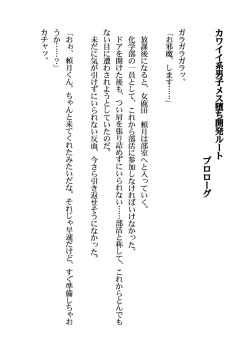 カワイイ系男子メス堕ち開発ルート
プロローグ
ガラガラガラッ。
「お邪魔、します……」
放課後になると、女鹿田　頼月は部室へと入っていく。
化学部の一員として、これから部活に参加しなければいけなかった。
ドアを開けた後も、つい肩を張り詰めずにいられない……部活と称して、これからとんでも
ない目に遭わされようとしていたのだ。
未だに気が引けずにいられない反面、今さら引き返せそうになかった。
「おぉ、頼月くん。ちゃんと来てくれたみたいだな。それじゃ早速だけど、すぐ準備しちゃお
うか……？」
カチャッ。